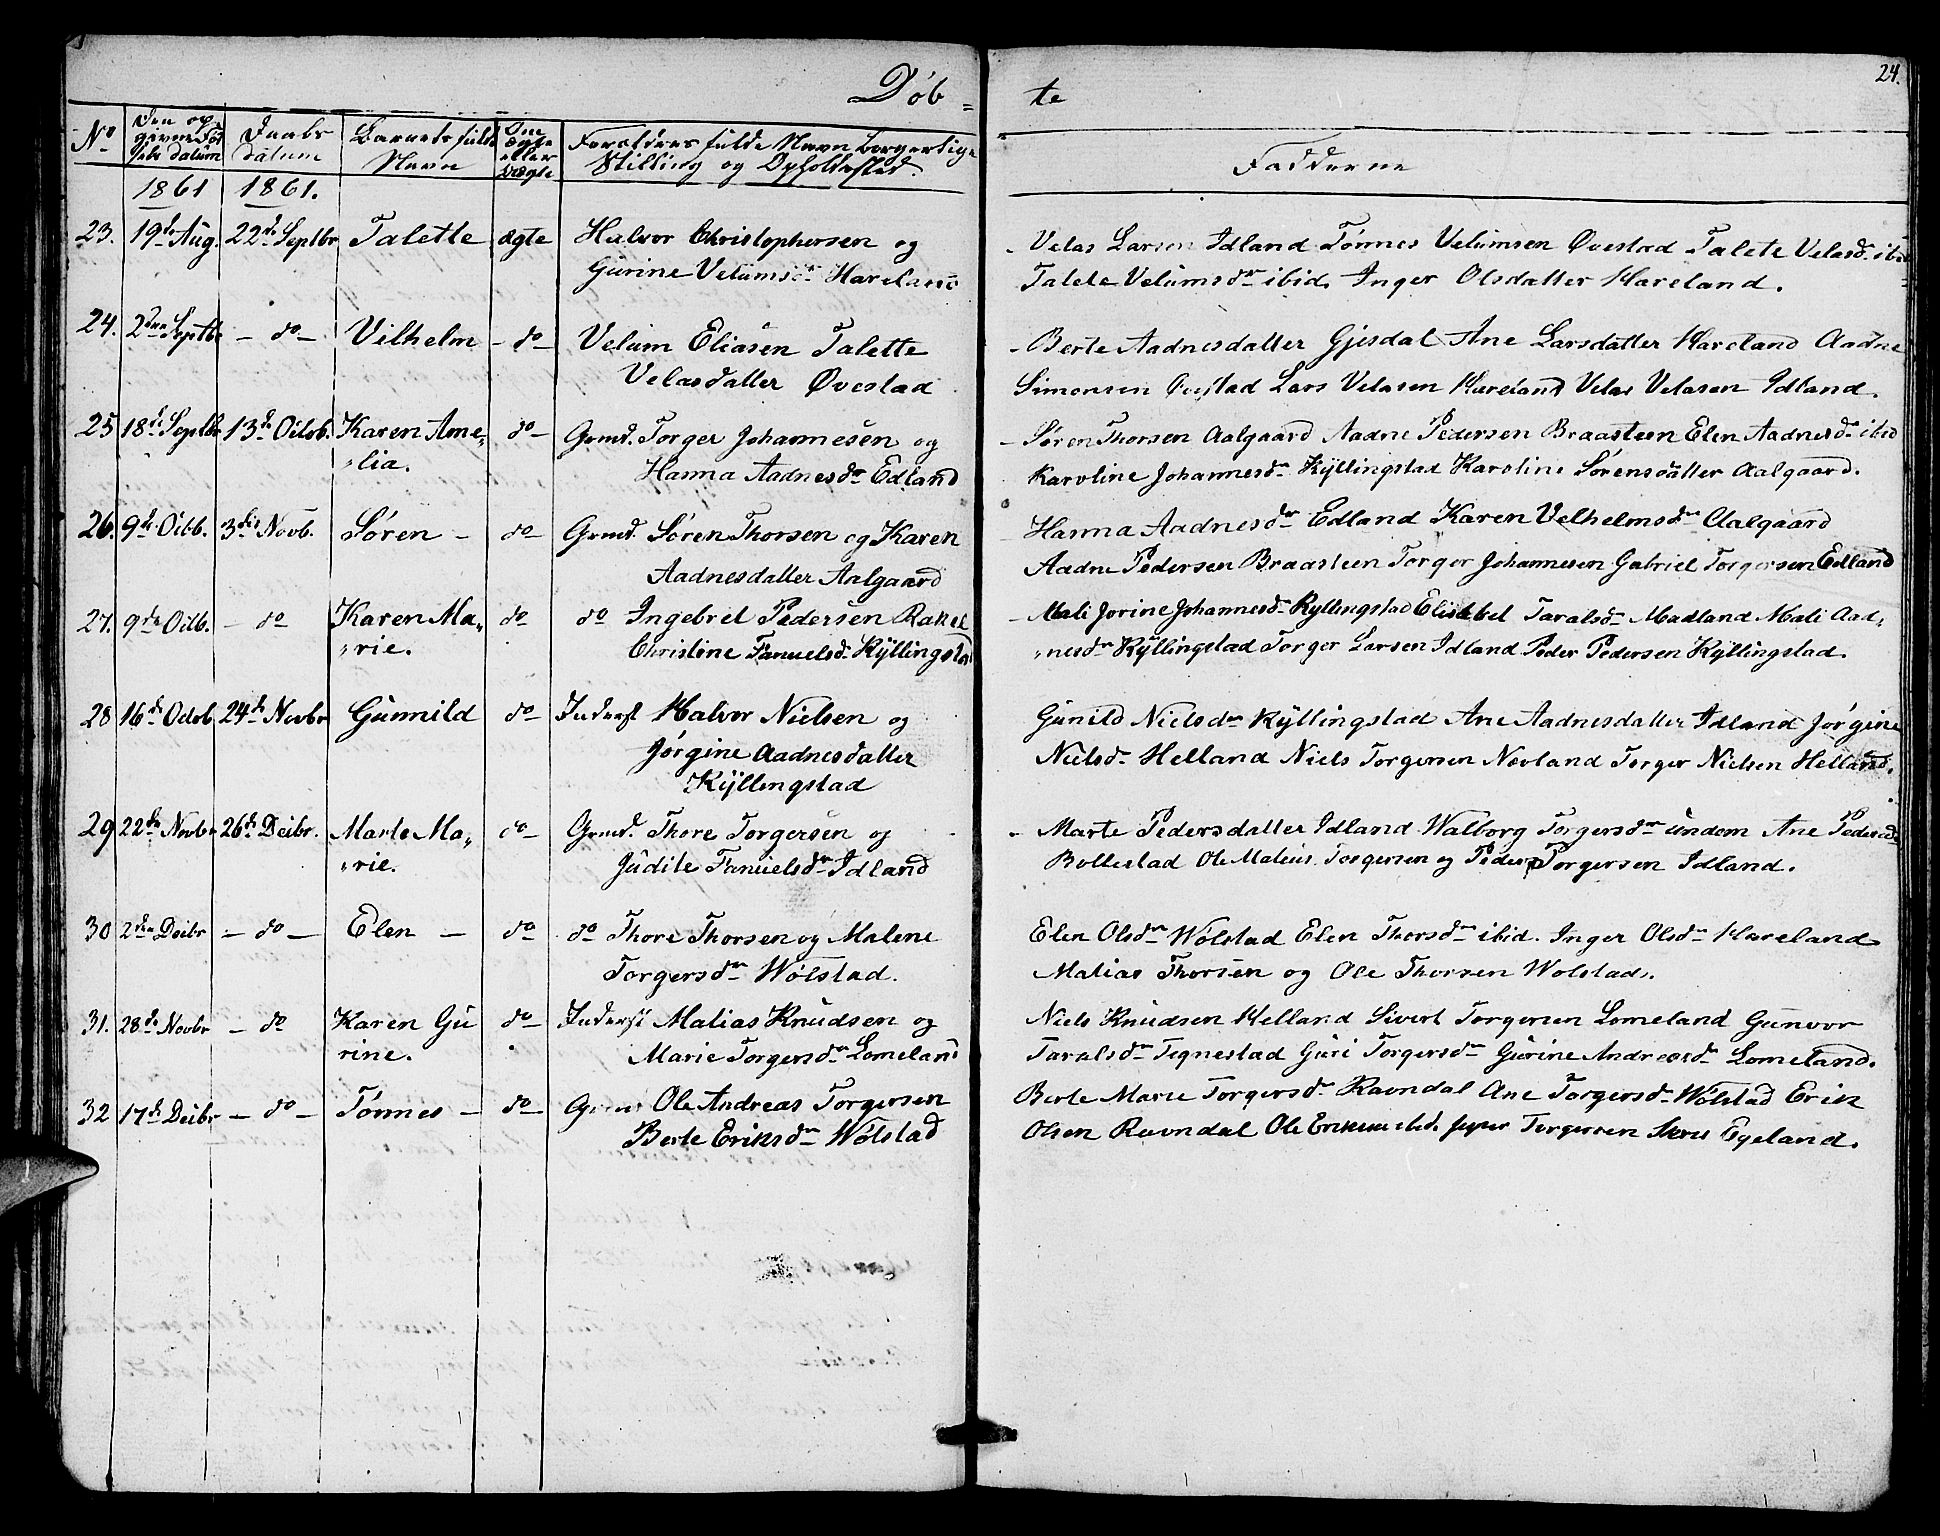 Døb-
te
24.
No
Den op-
givne Fød-
sels datum
Daabs
datum
Barnets fulde
Navn
Om
ægte
eller
uægte
Forældres fulde Navn borgerlige
Stilling og Opholdssted.
Fadderne
1861
1861.
23. 19de Aug. 22de Septbr Talette ægte Halvor Christophersen og
Gürine Velümsdr Hareland
Velas Larsen Idland Tønnes Velümsen Øvestad Talete Velasdr ibid
Talete Velümsdr ibid. Inger Olsdatter Hareland.
24. 2den Septbr - do - Vilhelm - do - Velüm Eliasen Talette
Velasdatter Øvestad
Berte Aadnesdatter Gjesdal Ane Larsdatter Hareland Aadne
Simonsen Øvestad Lars Velasen Hareland Velas Velasen Idland.
25 18de Septbr 13de Octob. Karen Ame-
lia. do - Grmd. Torger Johannesen og
Hanna Aadnesdr Edland
Søren Thorsen Aalgaard Aadne Pedersen Braasteen Elen Aadnesdr ibid
Karoline Johannesdr Kÿllingstad Karoline Sørensdatter Aalgaard.
26. 9de Octb. 3die Novb. Søren - do - Grmd. Søren Thorsen og Karen
Aadnesdatter Aalgaard
Hanna Aadnesdr Edland Karen Velhelmsdr Aalgaard
Aadne Pedersen Braasteen Torger Johannesen Gabriel Torgersen Edland
27. 9de Octb. - do Karen Ma-
rie. do do Ingebret Pedersen Rakel
Christine Fanuelsdr Kÿllingstad
Mali Jorine Johannesdr Kyllingstad Elisabet Taralsdr Madland Mali Aad-
nesdr Kÿllingstad Torger Larsen Idland Peder Pedersen Kÿllingstad.
28 16de Octob 24de Novbr Günnild do - Inderst Halvor Nielsen og
Jørgine Aadnesdatter
Kÿllingstad
Günild Nielsdr Kÿllingstad Ane Aadnesdatter Idland Jørgine
Nielsdr Helland Niels Torgersen Novland Torger Nielsen Helland.
29 22de Novbr 26de Decbr. Marte Ma-
rie. do - Grmd. Thore Torgersen og
Jüdite Fanuelsdr Idland
Marte Pedersdatter Idland Walborg Torgersdr ündem Ane Pedersdr
Bollestad Ole Mateus Torgersen og Peder Torgersen Idland.
30 2den Decbr - do - Elen - do do Thore Thorsen og Malene
Torgersdr Wølstad.
Elen Olsdr Wølstad Elen Thorsdr ibid. Inger Olsdr Hareland
Matias Thorsen og Ole Thorsen Wolstad.
31. 28de Novbr - do Karen Gü
rine. do - Inderst Matias Knüdsen og
Marie Torgersdr Lomeland
Niels Knüdsen Helland Sivert Torgersen Lomeland Gunvor
Taralsdr Tegnestad Güri Torgersdr Gürine Andreasdr Lomeland.
32 17de Decbr - do - Tønnes - do - Ole Andreas Torgersen
Berte Eriksdr Wølstad
Berte Marie Torgersdr Ravndal Ane Torgersdr Wølstad Erik
Olsen Ravndal Ole Eriksen ibid. Torgersen Egeland.